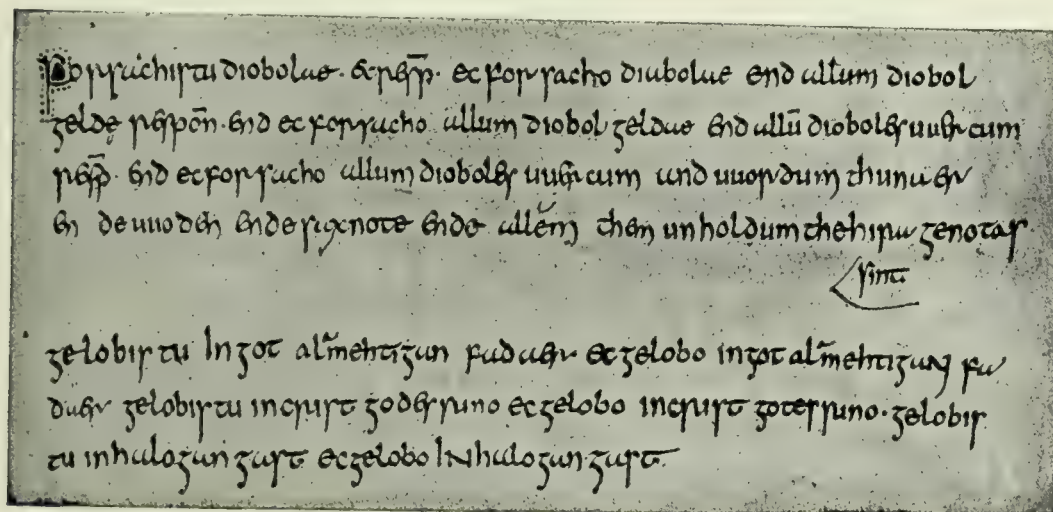 Forsachistu diobolae. & resp̄. ec forsacho diabolae end allum diobol
gelde respoñ. end ec forsacho allum diobol geldae end allū dioboles uuercum
resp̄. end ec forsacho allum dioboles uuercum and uuordum thunaer
en de uuoden ende saxnote ende allēm them unholdum the hira genotas
sint
gelobistu in got alamehtigan fadaer ec gelobo in got alamehtigan fa
daer gelobistu in crist godes suno ec gelobo in crist gotes suno. gelobis
tu in halogan gast ec gelobo in halogan gast